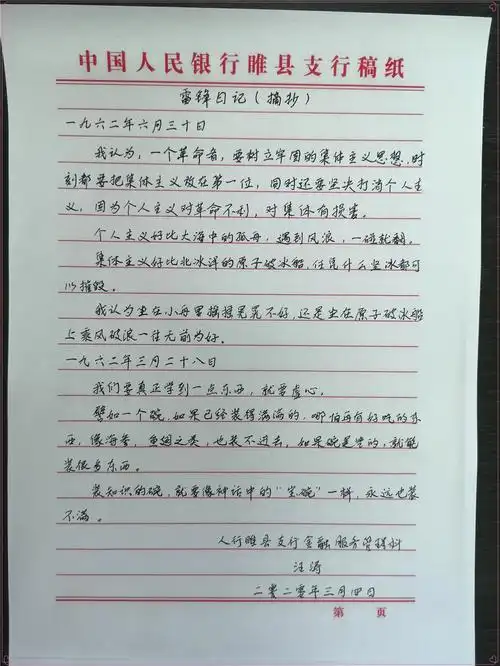 中国人民银行睢县支行稿纸
雷锋日记（摘抄）
一九六二年六月三十日
我认为，一个革命者，要树立牢固的集体主义思想，时
刻都要把集体主义放在第一位，同时还要坚决打消个人主
义，因为个人主义对革命不利，对集体有损害。
个人主义好比大海中的孤舟，遇到风浪，一碰就翻。
集体主义好比北冰洋的原子破冰船，任凭什么坚冰都可
以摧毁。
我认为坐在小舟里摇摇晃晃不好，还是坐在原子破冰船
上乘风破浪一往无前为好。
一九六二年三月二十八日
我们要真正学到一点东西，就要虚心。
譬如一个碗，如果已经装得满满的，哪怕再有好吃的东
西，像海参、鱼翅之类，也装不进去，如果碗是空的，就能
装很多东西。
装知识的碗，就要像神话中的“宝碗”一样，永远也装
不满。
人行睢县支行金融服务管理科
汪涛
二零二零年三月四日
第 页